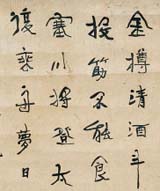 金樽清酒斗
投筯不能食
塞川將登太
復乘舟夢日